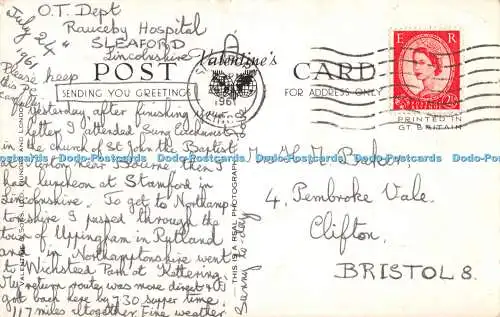 O.T. Dept
Rauceby Hospital
SLEAFORD
Lincolnshire
July 24"
1961
Please keep
this PC
carefully
Valentine's
POST CARD
SENDING YOU GREETINGS
FOR ADDRESS ONLY
1961
E R
PRINTED IN
GT BRITAIN
yesterday, after finishing your
letter I attended Sung Eucharist
in the church of St John the Baptist
near Bourne then I
had luncheon at Stamford in
Lincolnshire. To get to Northamp-
tonshire I passed through the
town of Uppingham in Rutland
and in Northamptonshire went
to Wicksteed Park at Kettering.
My return route was more direct & I
got back here by 7.30 supper time.
117 miles altogether. Fine weather
Sunny to-day
VALENTINE & SONS, LTD., DUNDEE AND LONDON
THIS IS A REAL PHOTOGRAPH
Mr H. J. Baker,
4, Pembroke Vale.
Clifton.
BRISTOL 8.
Dodo-Postcards Dodo-Postcards Dodo-Postcards Dodo-Postcards Dodo-Postcards